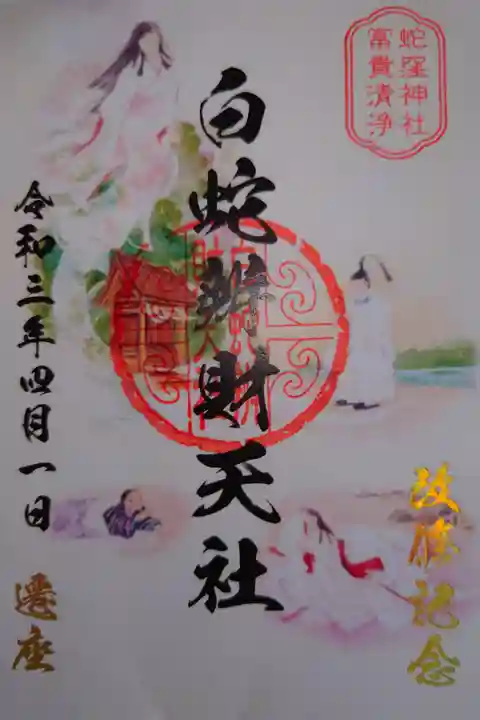 蛇窪神社
富貴清浄
白蛇辨財天社
令和三年四月一日
遷座
記念